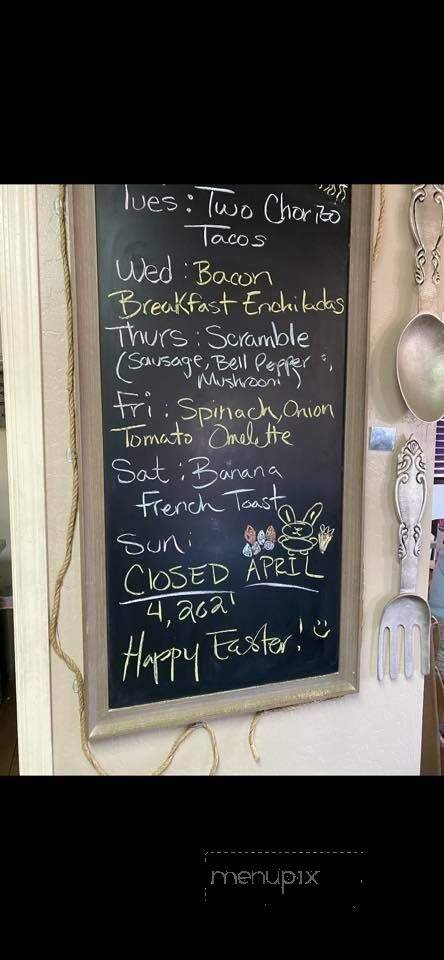 Tues: Two Chorizo
Tacos
Wed: Bacon
Breakfast Enchiladas
Thurs: Scramble
(Sausage, Bell Pepper &
Mushroom)
Fri: Spinach, Onion
Tomato Omelette
Sat: Banana
French Toast
Sun:
CLOSED APRIL
4, 2021
Happy Easter!
menupix